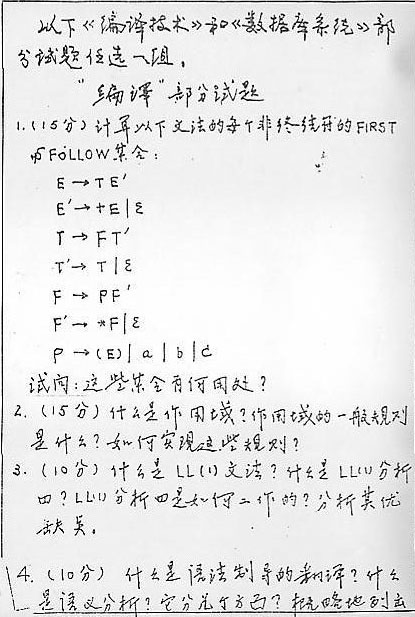 以下《编译技术》和《数据库系统》部
分试题任选一组。
“编译”部分试题
1.(15分)计算以下文法的每个非终结符的FIRST
与FOLLOW集合:
E → TE'
E' → +E|ε
T → FT'
T' → T|ε
F → PF'
F' → *F|ε
P → (E)|a|b|c
试问:这些集合有何用处?
2.(15分)什么是作用域?作用域的一般规则
是什么?如何实现这些规则?
3.(10分)什么是LL(1)文法?什么是LL(1)分析
四?LL(1)分析四是如何工作的?分析其优
缺点。
4.(10分)什么是语法制导的翻译?什么
是语义分析?它分几个方面?概略地列出